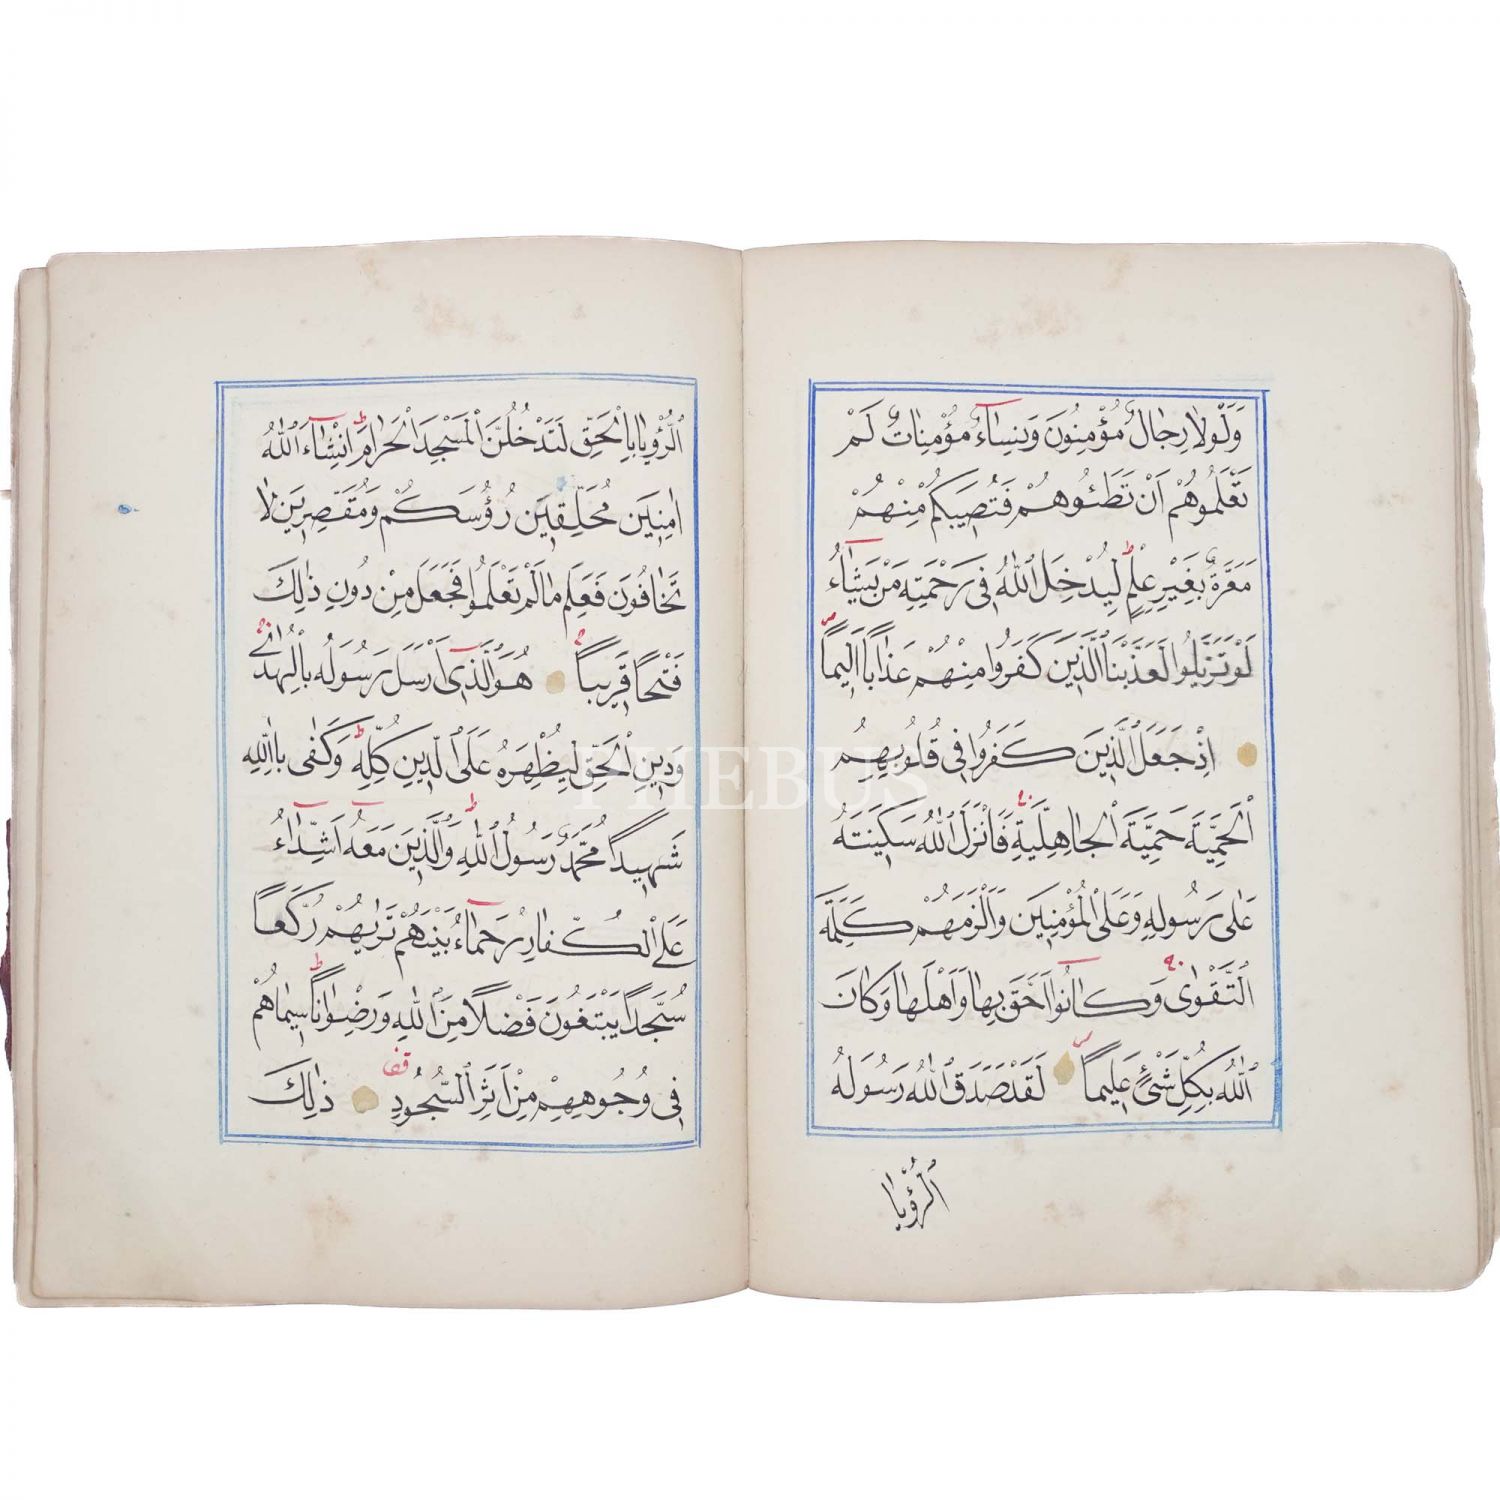 وَلَوْلَا رِجَالٌ مُؤْمِنُونَ وَنِسَاءٌ مُؤْمِنَاتٌ لَمْ
تَعْلَمُوهُمْ اَنْ تَطَئُوهُمْ فَتُصِيبَكُمْ مِنْهُمْ
مَعَرَّةٌ بِغَيْرِ عِلْمٍ ط لِيُدْخِلَ اللّٰهُ فِى رَحْمَتِهِ مَنْ يَشَاءُ
لَوْ تَزَيَّلُوا لَعَذَّبْنَا الَّذِينَ كَفَرُوا مِنْهُمْ عَذَابًا اَلِيمًا
اِذْ جَعَلَ الَّذِينَ كَفَرُوا فِى قُلُوبِهِمُ
الْحَمِيَّةَ حَمِيَّةَ الْجَاهِلِيَّةِ فَاَنْزَلَ اللّٰهُ سَكِينَتَهُ
عَلٰى رَسُولِهِ وَعَلَى الْمُؤْمِنِينَ وَاَلْزَمَهُمْ كَلِمَةَ
التَّقْوٰى وَكَانُوا اَحَقَّ بِهَا وَاَهْلَهَا وَكَانَ
اللّٰهُ بِكُلِّ شَىْءٍ عَلِيمًا لَقَدْ صَدَقَ اللّٰهُ رَسُولَهُ
الرُّؤْيَا
الرُّؤْيَا بِالْحَقِّ لَتَدْخُلُنَّ الْمَسْجِدَ الْحَرَامَ ط اِنْشَاءَ اللّٰهُ
اٰمِنِينَ مُحَلِّقِينَ رُؤُسَكُمْ وَمُقَصِّرِينَ لَا
تَخَافُونَ فَعَلِمَ مَا لَمْ تَعْلَمُوا فَجَعَلَ مِنْ دُونِ ذٰلِكَ
فَتْحًا قَرِيبًا هُوَ الَّذِى اَرْسَلَ رَسُولَهُ بِالْهُدٰى
وَدِينِ الْحَقِّ لِيُظْهِرَهُ عَلَى الدِّينِ كُلِّهِ ط وَكَفٰى بِاللّٰهِ
شَهِيدًا مُحَمَّدٌ رَسُولُ اللّٰهِ ط وَالَّذِينَ مَعَهُ اَشِدَّاءُ
عَلَى الْكُفَّارِ رُحَمَاءُ بَيْنَهُمْ تَرٰيهُمْ رُكَّعًا
سُجَّدًا يَبْتَغُونَ فَضْلًا مِنَ اللّٰهِ وَرِضْوَانًا ط سِيمَاهُمْ
فِى وُجُوهِهِمْ مِنْ اَثَرِ السُّجُودِ قف ذٰلِكَ
PHEBUS